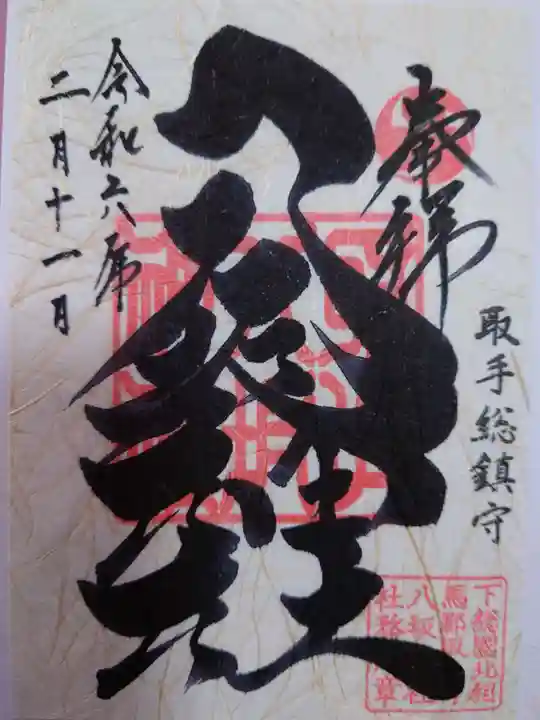 奉拝
取手総鎮守
八坂神社
令和六年
二月十一日
下総國北相
馬郡取
八坂神社
社務所章